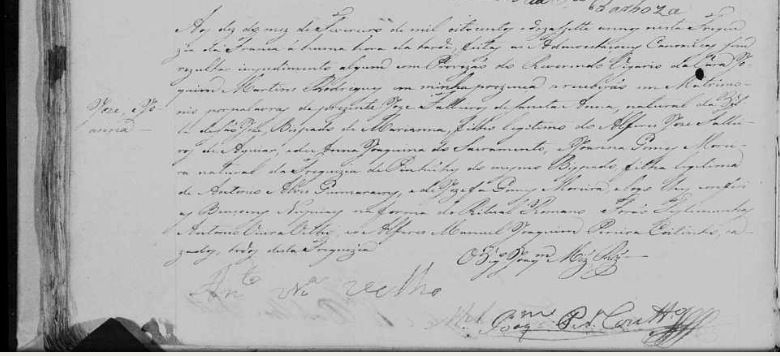 Barboza
Aos dez do mez de Fevereiro de mil oitocentos e dezasette annos nesta Fregue
zia da Franca á huma hora da tarde, feitas as Admoestaçoens Canonicas sem
rezultar impedimento algum com Provizão do Reverendo Vigario da Vara Jo
aquim Martins Rodrigues em minha prezença receberão em Matrimo-
nio por palavras de prezente Joze de Santa Anna, natural da Vil
la de São Joze, Bispado de Marianna, filho legitimo do Alferes Joze
de Aguiar, e de Anna Joaquina do Sacramento, e Joanna Gomes Morei-
ra natural da Freguezia de do mesmo Bispado, filha legitima
de Antonio Alves Guimaraens, e de Jozefa Gomes Moreira logo lhes conferi
as Bençoens Nupciaes na forma do Ritual Romano. Forão Testemunhas
Antonio Vieira e o Alferes Manuel Joaquim Pereira Coitinho, ca-
zados, todos desta Freguezia
Joze, e Jo
anna
O Vigr.o Joaq.m Miz Roiz
Ant.o Vr.a Velho
M.el Joaq.m Pr.a Coutt.o